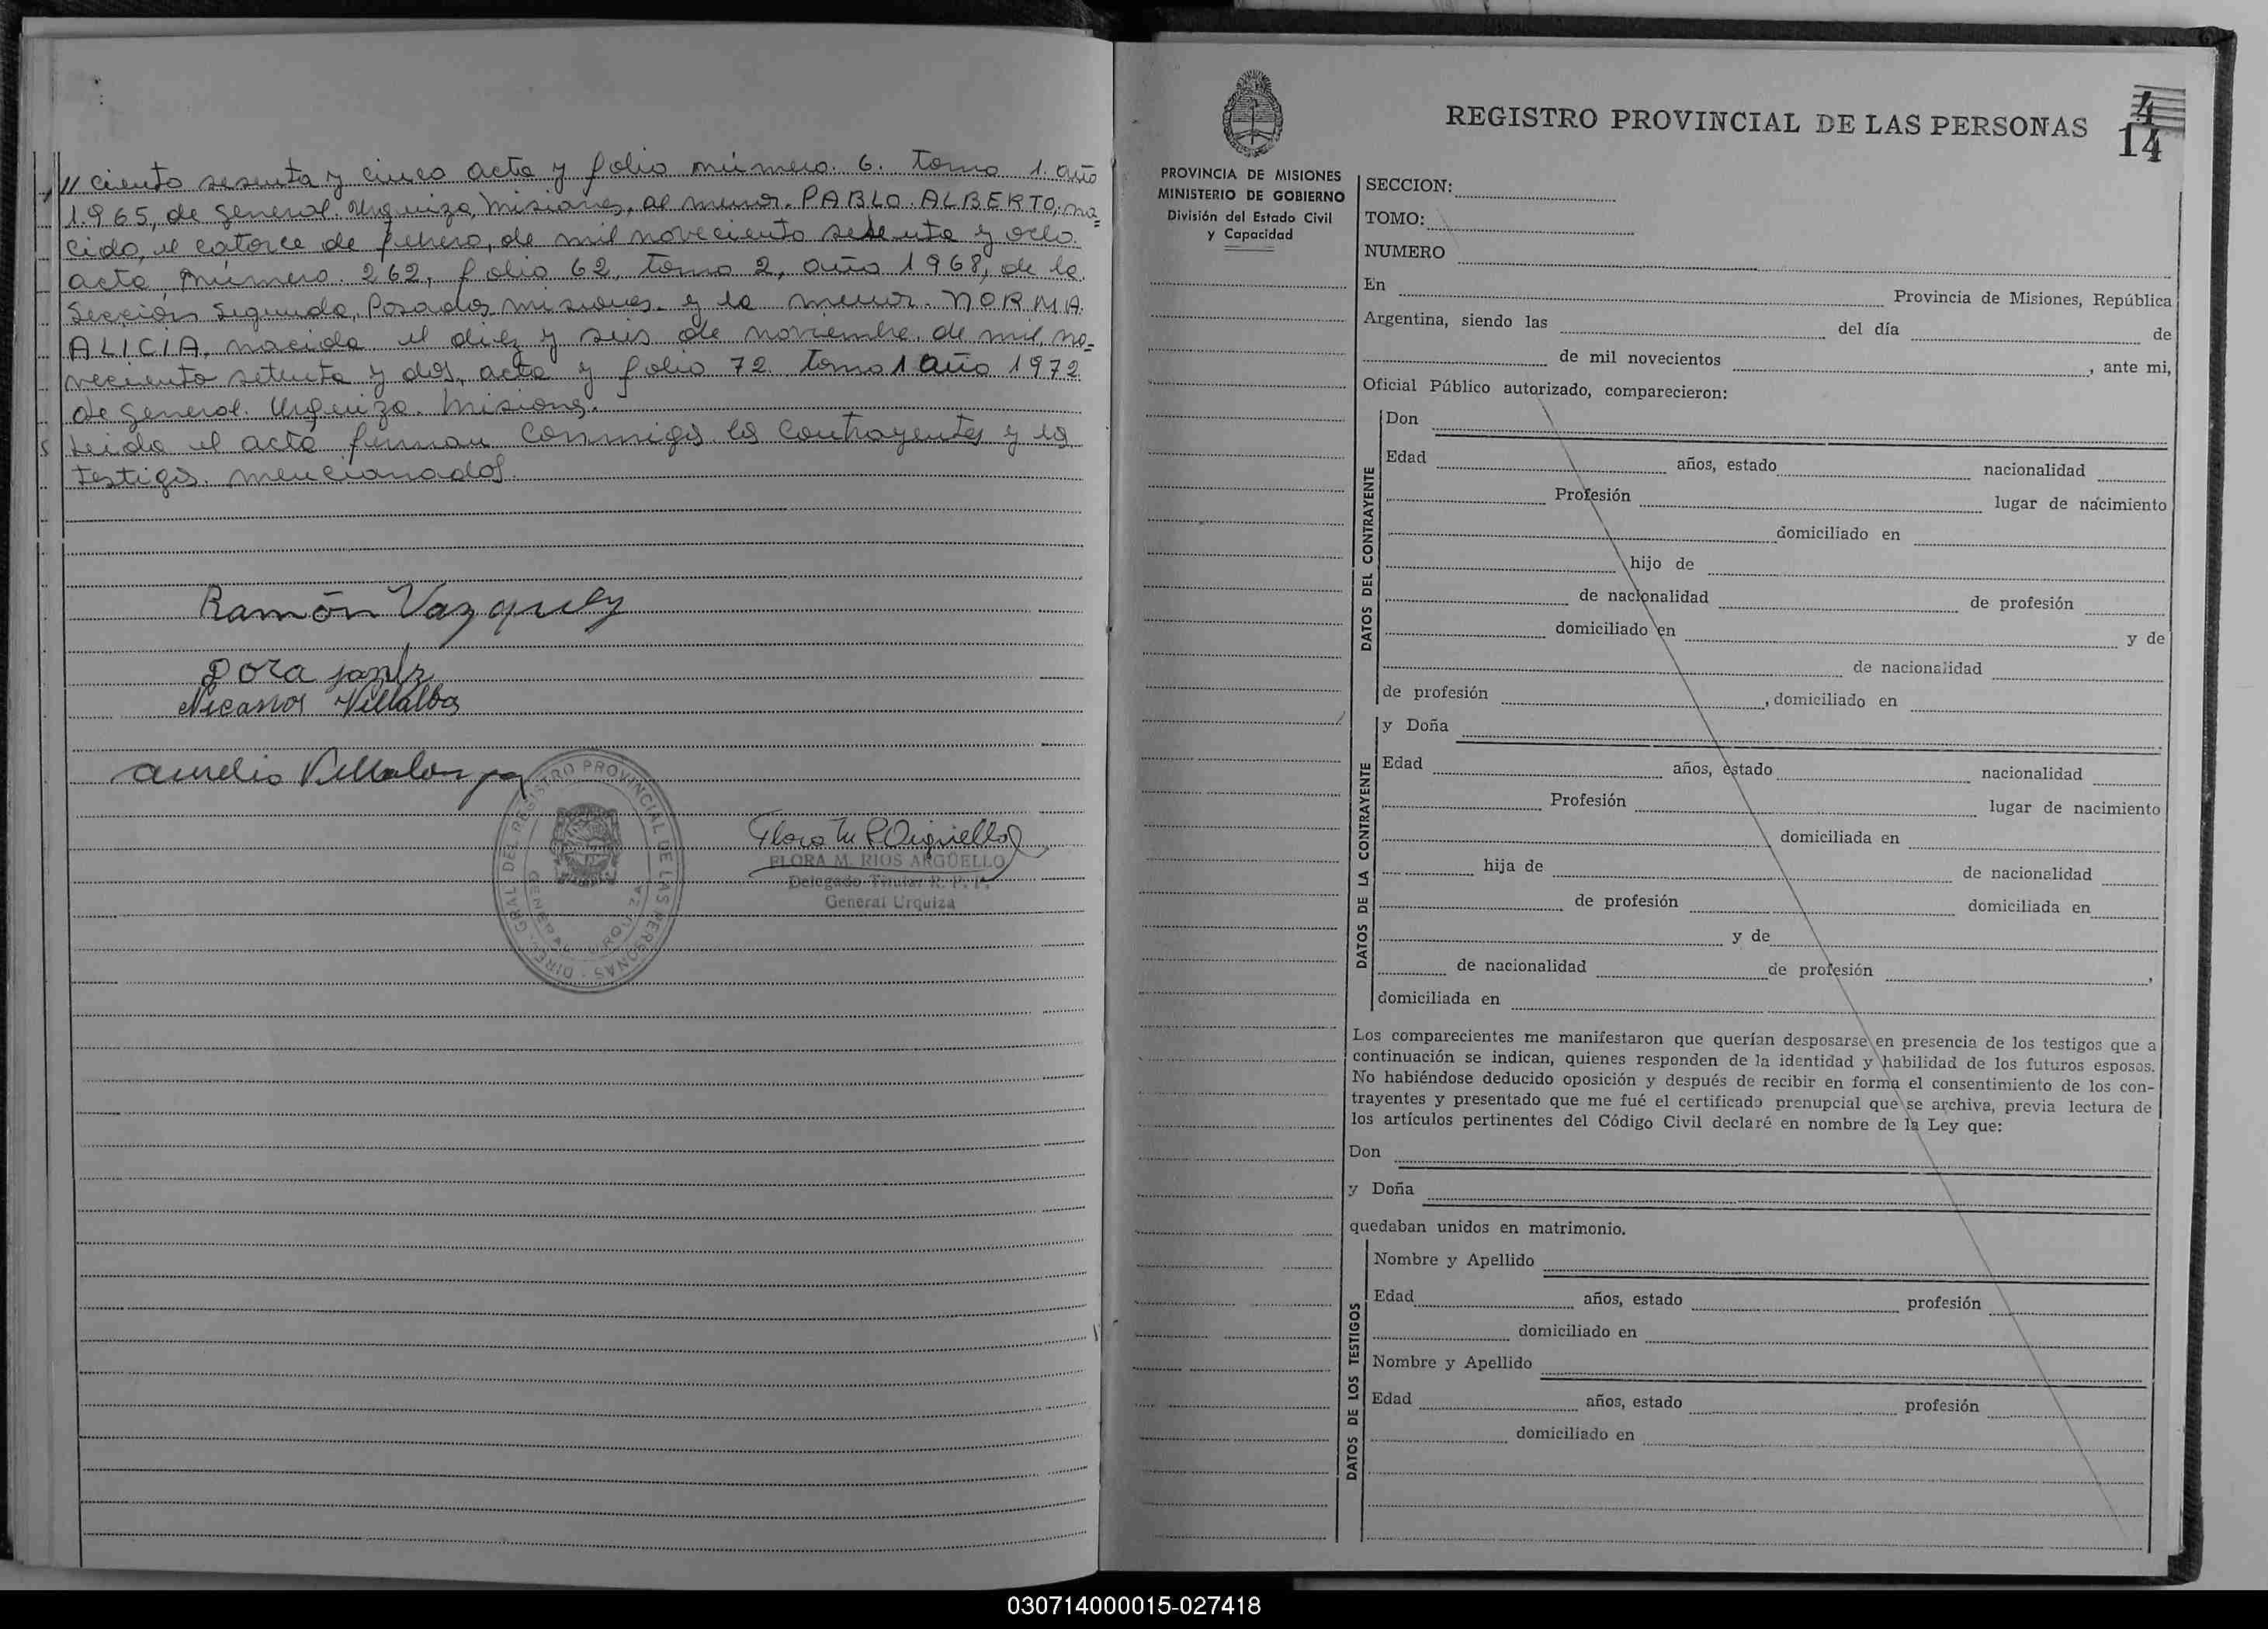 // ciento sesenta y cinco acta y folio número 6. tomo 1. año
1.965, de General Urquiza, Misiones, al menor. PABLO ALBERTO, na=
cido, el catorce de febrero, de mil novecientos sesenta y ocho.
acta, número. 262, folio 62, tomo 2, año 1968, de la
Sección Segunda, Posadas misiones. y la menor. NORMA
ALICIA, nacida el diez y seis de noviembre de mil no=
vecientos setenta y dos, acta y folio 72. tomo 1 año 1972
de General Urquiza. Misiones.
Leida el acta firman conmigo los contrayentes y los
testigos. mencionados.
Ramón Vazquez
Dora
Nicanor Villalba
Aurelio
DIREC. GRAL. DEL REGISTRO PROVINCIAL DE LAS PERSONAS
GENERAL URQUIZA
FLORA M. RIOS ARGÜELLO
Delegado Titular R. P. P.
General Urquiza
REGISTRO PROVINCIAL DE LAS PERSONAS
4
14
PROVINCIA DE MISIONES
MINISTERIO DE GOBIERNO
División del Estado Civil
y Capacidad
SECCION:
TOMO:
NUMERO
En Provincia de Misiones, República
Argentina, siendo las del día de
de mil novecientos , ante mi,
Oficial Público autorizado, comparecieron:
DATOS DEL CONTRAYENTE
Don
Edad años, estado nacionalidad
Profesión lugar de nacimiento
domiciliado en
hijo de
de nacionalidad de profesión
domiciliado en y de
de nacionalidad
de profesión , domiciliado en
DATOS DE LA CONTRAYENTE
y Doña
Edad años, estado nacionalidad
Profesión lugar de nacimiento
domiciliada en
hija de de nacionalidad
de profesión domiciliada en
y de
de nacionalidad de profesión ,
domiciliada en
Los comparecientes me manifestaron que querían desposarse en presencia de los testigos que a
continuación se indican, quienes responden de la identidad y habilidad de los futuros esposos.
No habiéndose deducido oposición y después de recibir en forma el consentimiento de los con-
trayentes y presentado que me fué el certificado prenupcial que se archiva, previa lectura de
los artículos pertinentes del Código Civil declaré en nombre de la Ley que:
Don
y Doña
quedaban unidos en matrimonio.
DATOS DE LOS TESTIGOS
Nombre y Apellido
Edad años, estado profesión
domiciliado en
Nombre y Apellido
Edad años, estado profesión
domiciliado en
030714000015-027418